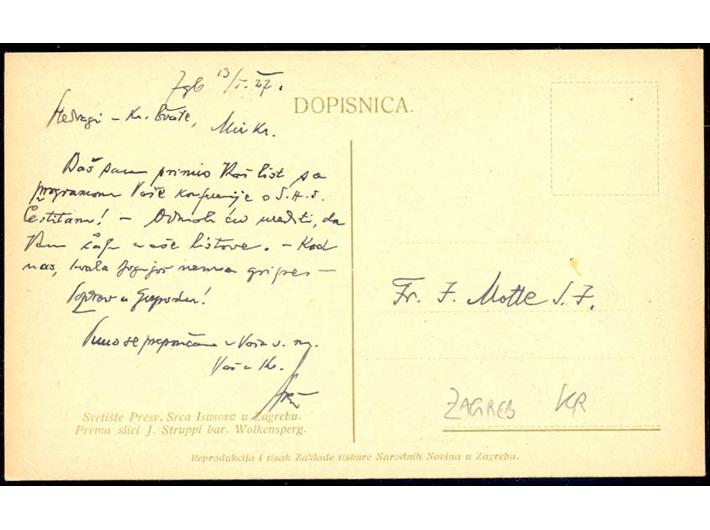 Zgb 13/I. 27.
DOPISNICA.
Predragi – Kr. brate, Mir Kr.
Baš sam primio Vaš list sa
programom Vaše o S.H.S.
Čestitam! – Odmah ću urediti, da
Vam naše listove. – Kod
nas, hvala Bogu još nema gripes –
Pozdrav u Gospodinu!
Puno se preporučam u Vaše s. m.
Vaš u Kr.
Fr. J. Motte S. J.
ZAGREB KR
Svetište Presv. Srca Isusova u Zagrebu.
Prema slici J. Struppi bar. Wolkensperg.
Reprodukcija i tisak Zaklade tiskare Narodnih Novina u Zagrebu.